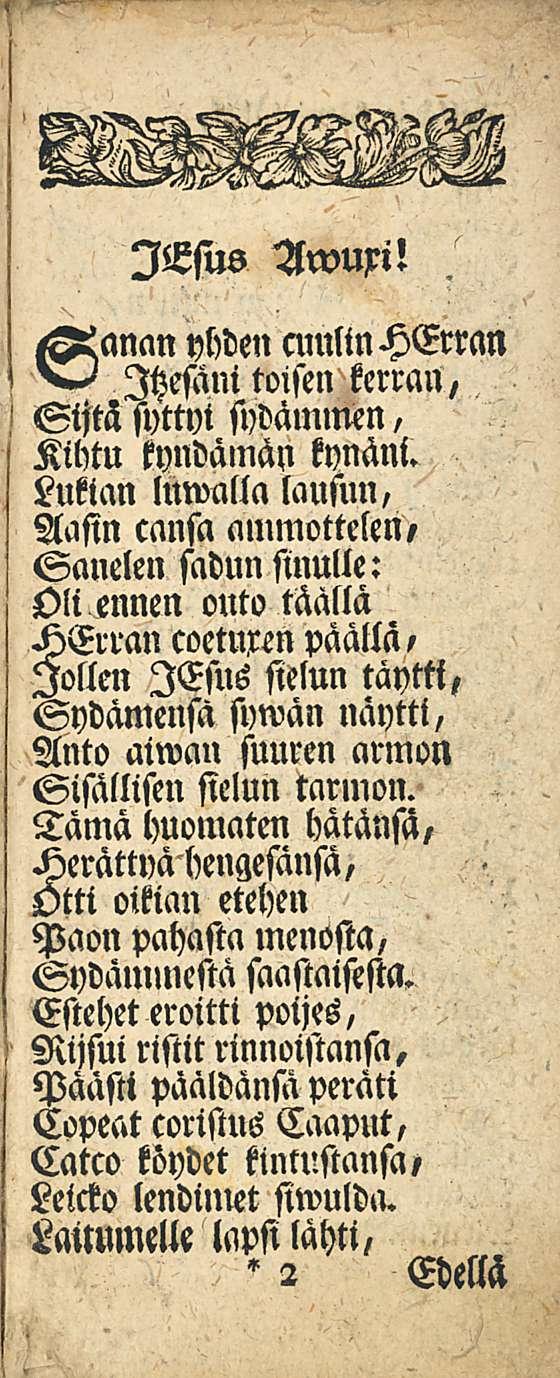 JEsus Awuxi!
Sanan yhden cuulin HErran
Itzesäni toisen kerran,
Sijtä syttyi sydämmen,
Kihtu kyndämän kynäni.
Lukian luwalla lausun,
Aasin cansa ammottelen,
Sanelen sadun sinulle:
Oli ennen outo täällä
HErran coetuxen päällä,
Jollen JEsus sielun täytti,
Sydämensä sywän näytti,
Anto aiwan suuren armon
Sisällisen sielun tarmon.
Tämä huomaten hätänsä,
Herättyä hengesänsä,
Otti oikian etehen
Paon pahasta menosta,
Sydämmestä saastaisesta.
Estehet eroitti poijes,
Rijsui ristit rinnoistansa,
Päästi pääldänsä peräti
Copeat coristus Caaput,
Catco köydet kintustansa,
Leicko lendimet siwulda.
Laitumelle lapsi lähti,
* 2 Edellä